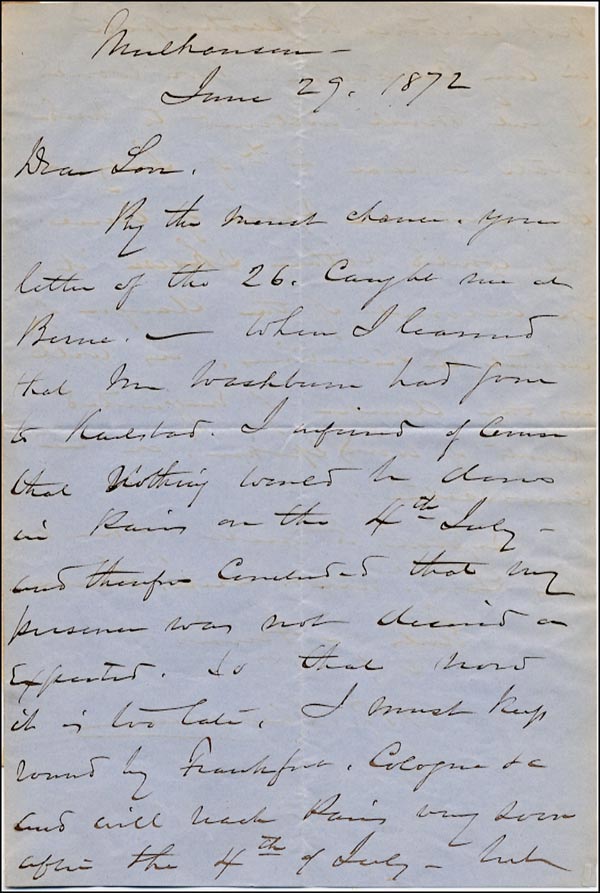 Mulhausen –
June 29. 1872
Dear Son.
By the merest chance. your
letter of the 26. Caught me at
Berne. — When I learned
that Mr Washburn had gone
to Karlsbad. I inferred of course
that Nothing would be done
in Paris on the 4th July –
and therefore Concluded that my
presence was not desired or
Expected. So that now
it is too late. I must keep
round by Frankfort. Cologne &c
and will reach Paris very soon
after the 4th of July –